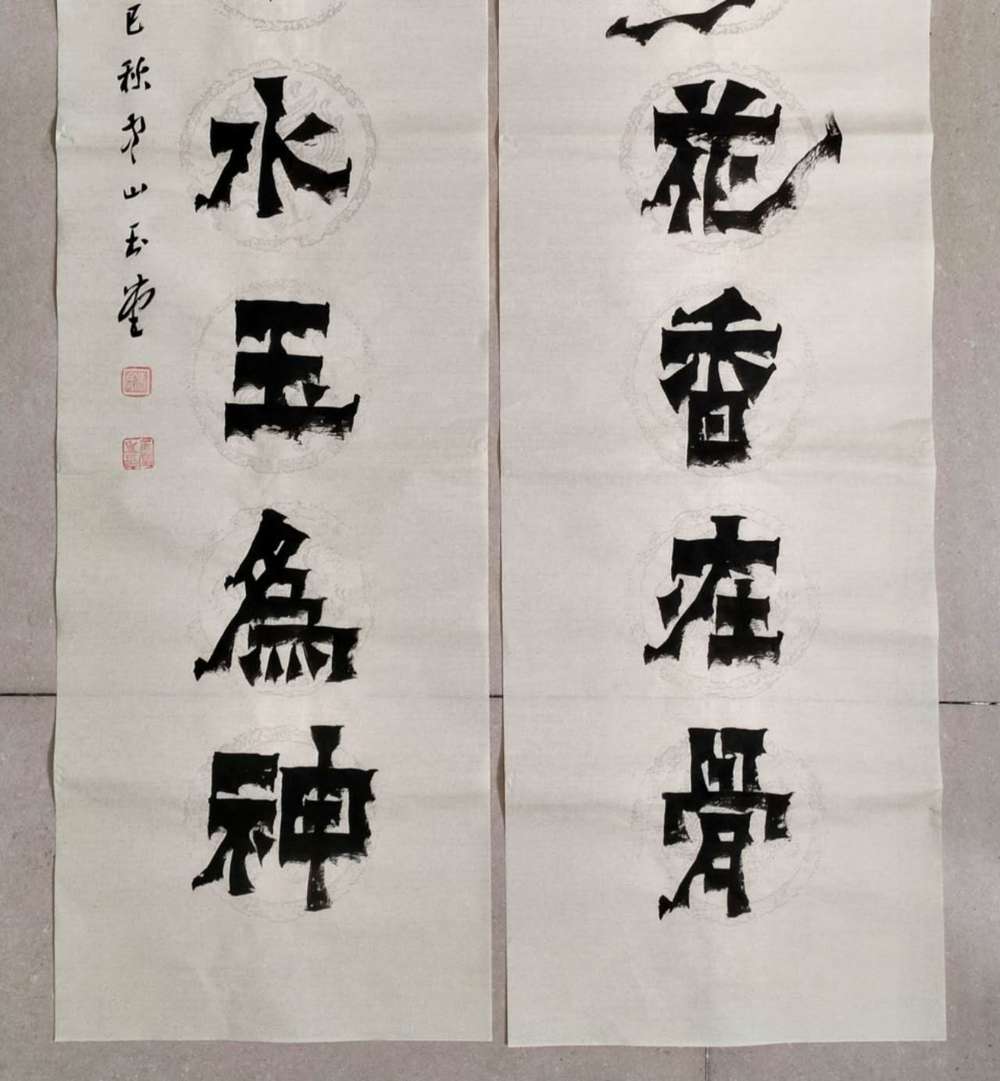 花香在骨
水玉為神
巳秋山玉堂